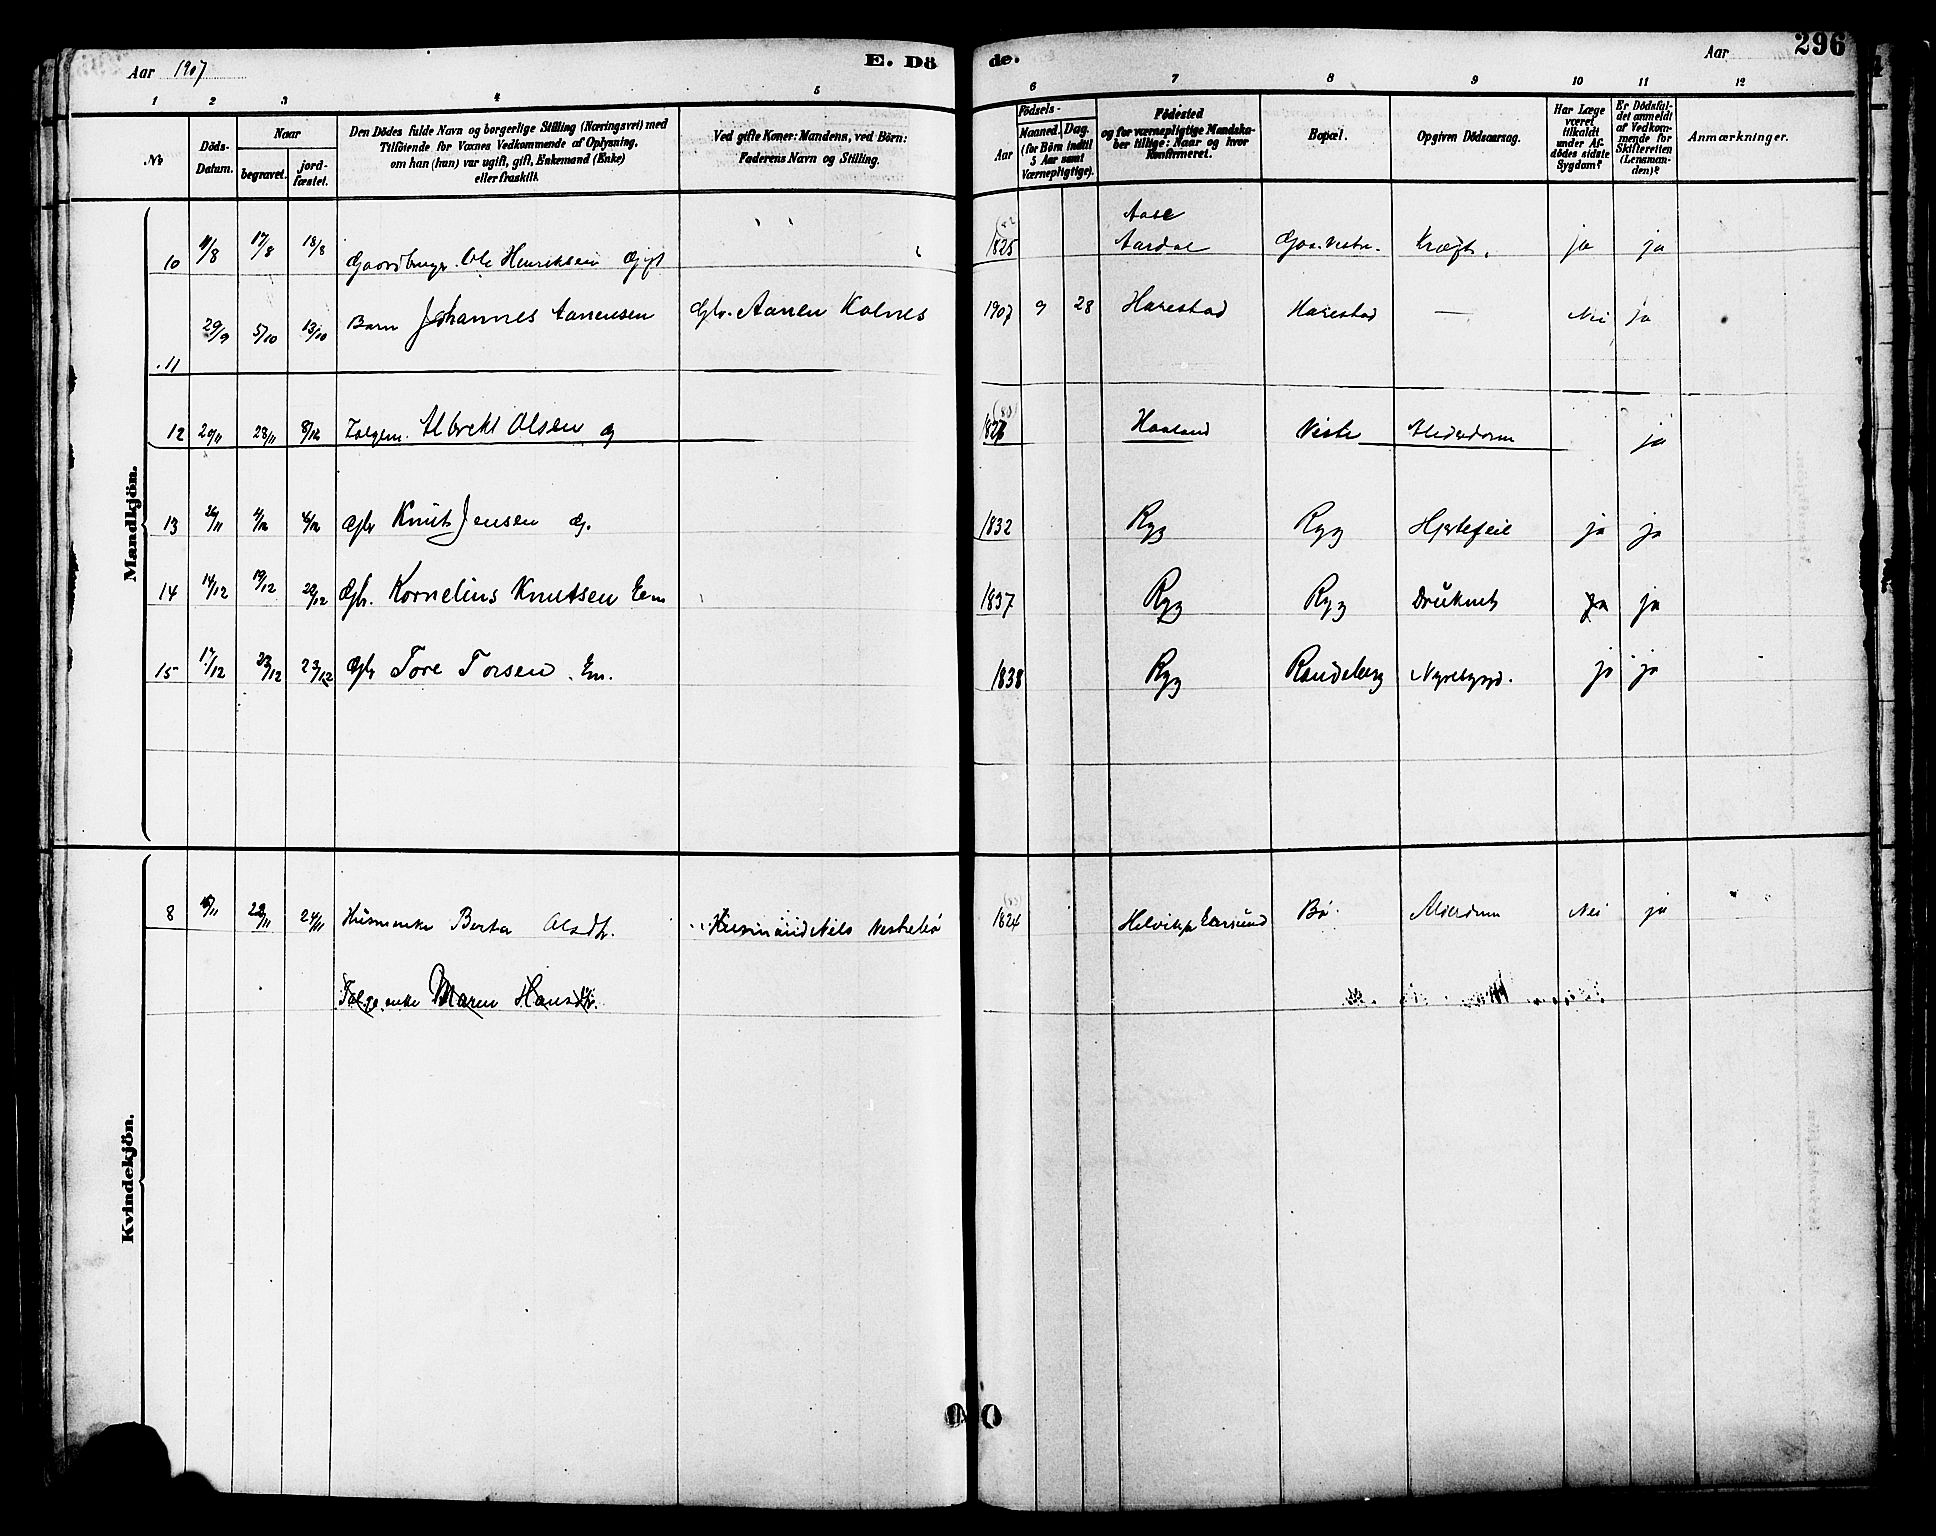 Aar 1907
E. Dö
de.
Aar
296
1 2 3 4 5 6 7 8 9 10 11 12
No
Döds-Datum.
Naar
begravet.
jord-fæstet.
Den Dödes fulde Navn og borgerlige Stilling (Næringsvei) med
Tilföiende for Voxnes Vedkommende af Oplysning,
om han (hun) var ugift, gift, Enkemand (Enke)
eller fraskilt.
Ved gifte Koner: Mandens, ved Börn:
Faderens Navn og Stilling.
Födsels-
Aar
Maaned. Dag.
(for Börn indtil
5 Aar samt
Værnepligtige).
Födested
og for værnepligtige Mandska-
ber tillige: Naar og hvor
Konfirmeret.
Bopæl.
Opgiven Dödsaarsag.
Har Læge
været
tilkaldt
under Af-
dödes sidste
Sygdom?
Er Dödsfal-
det anmeldt
af Vedkom-
mende for
Skifteretten
(Lensman-
den)?
Anmærkninger.
Mandkjön.
10 11/8 17/8 18/8 Gaardbruger Ole Henriksen Gift 1825 Aase Aardal Kræft. ja ja
11 29/9 5/10 13/10 Barn Johannes Aanensen Gbr. Aanen Kolnes 1907 9 28 Harestad Harestad — Nei ja
12 20/11 28/11 8/12 Albrekt Olsen g Haaland Viste Alderdom ja
13 26/11 4/12 4/12 Gbr Knut Jensen g. 1832 Ryg Ryg Hjertefeil ja ja
14 14/12 19/12 20/12 Gbr. Kornelius Knutsen Em 1837 Ryg Ryg Druknet ja ja
15 17/12 23/12 23/12 Gbr Tore Torsen Em. 1838 Ryg Randeberg Nyresygd. ja ja
Kvindekjön.
8 22/11 24/11 Husmenke Berta Olsdtr. Husmand Nils Vestrebö 1824 Helvik Egersund Bö. Alderdom Nei ja
Folge.enke Maren Hansdtr.